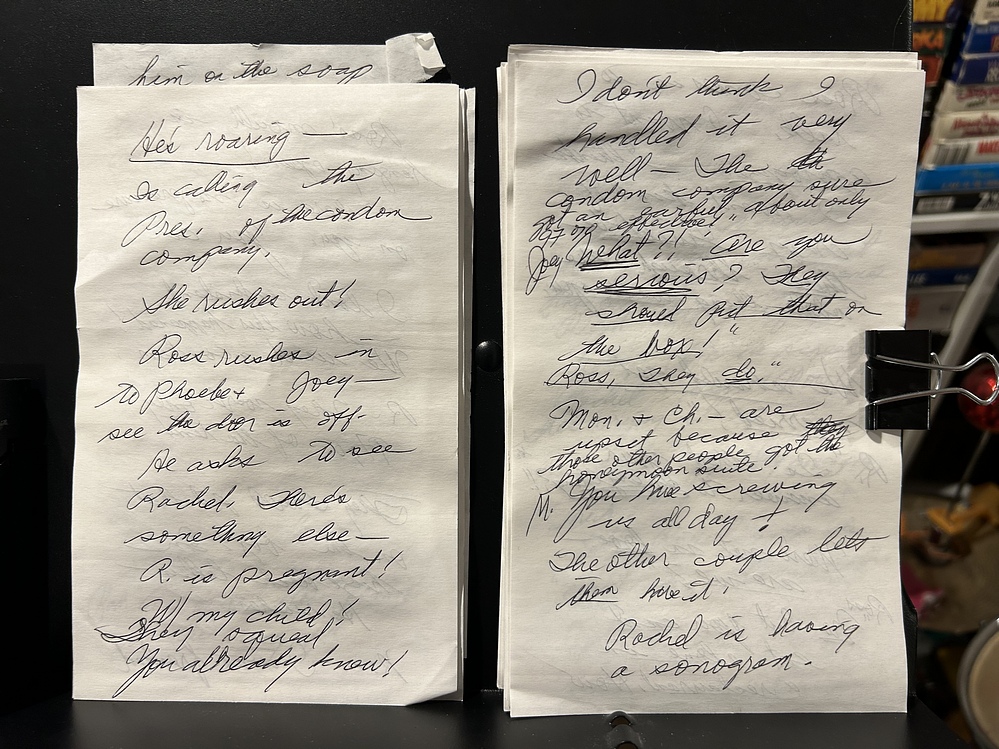 him on the soap
He's roaring —
Is calling the
Pres. of the condom
company.
She rushes out!
Ross rushes in
to Phoebe + Joey —
see the door is off
He asks to see
Rachel. There's
something else —
R. is pregnant!
W/ my child!
They squeal
You already know!
I don't think I
handled it very
well — The
condom company sure
got an earful" about only
97% effective!"
Joey What?!! Are you
serious? They
should put that on
the box!"
Ross, they do."
Mon. + Ch. — are
upset because
those other people got the
honeymoon suite!
M. You have screwing
us all day!
The other couple lets
them have it!
Rachel is having
a sonogram.